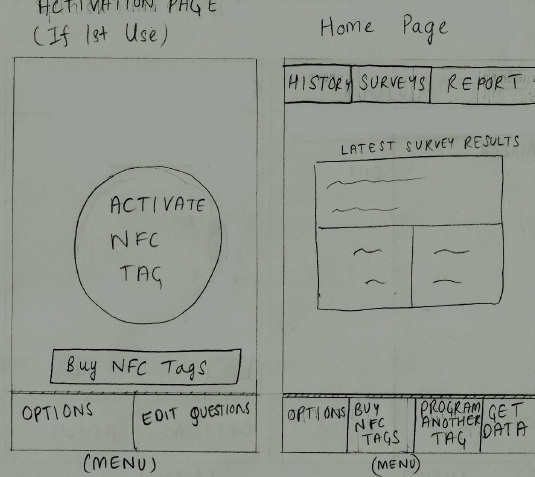 ACTIVATION PAGE
(If 1st Use)
ACTIVATE
NFC
TAG
Buy NFC Tags
OPTIONS
EDIT QUESTIONS
(MENU)
Home Page
HISTORY
SURVEYS
REPORT
LATEST SURVEY RESULTS
OPTIONS
BUY
NFC
TAGS
PROGRAM
ANOTHER
TAG
GET
DATA
(MENU)